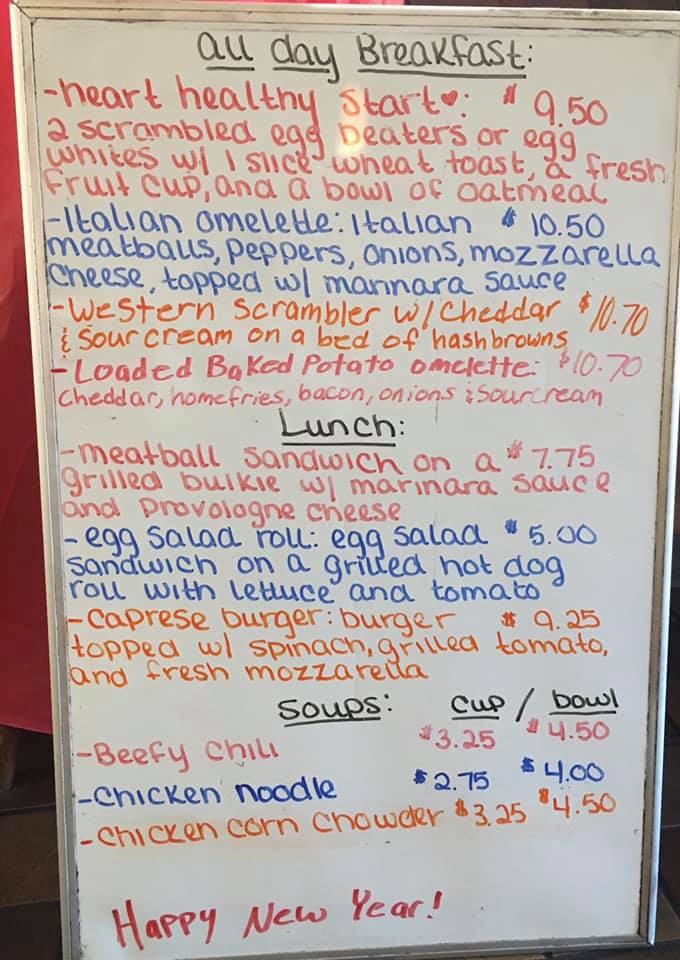 all day Breakfast:
-heart healthy start♥: $ 9.50
2 scrambled egg beaters or egg
whites w/ 1 slice wheat toast, a fresh
fruit cup, and a bowl of oatmeal
-Italian omelette: Italian $ 10.50
meatballs, peppers, onions, mozzarella
cheese, topped w/ marinara sauce
-Western scrambler w/ cheddar $10.70
& sour cream on a bed of hashbrowns
-Loaded Baked Potato omelette: $10.70
cheddar, homefries, bacon, onions & sourcream
Lunch:
-meatball sandwich on a $ 7.75
grilled bulkie w/ marinara sauce
and provologne cheese
-egg salad roll: egg salad $ 5.00
sandwich on a grilled hot dog
roll with lettuce and tomato
-caprese burger: burger $ 9.25
topped w/ spinach, grilled tomato,
and fresh mozzarella
Soups: cup / bowl
-Beefy Chili $3.25 $4.50
-Chicken noodle $2.75 $4.00
-Chicken corn chowder $3.25 $4.50
Happy New Year!